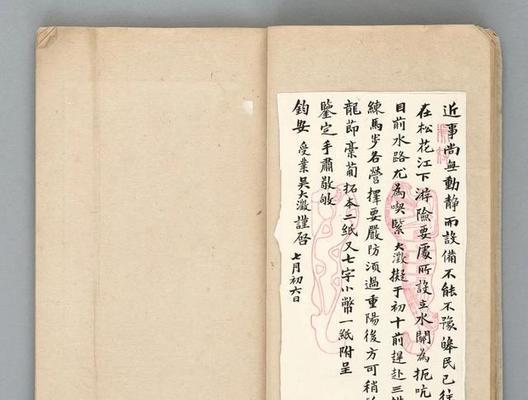 近事尚無動靜而設備不能不豫皞民已往
在松花江下游險要處所設立水關為扼吭
目前水路尤為喫緊大澂擬于初十前遄赴三
練馬步各營擇要嚴防須過重陽後方可稍
龍節橐籥拓本二紙又七字小幣一紙附呈
鑒定手肅敬敂
鈞安 受業吳大澂謹啓
七月初六日